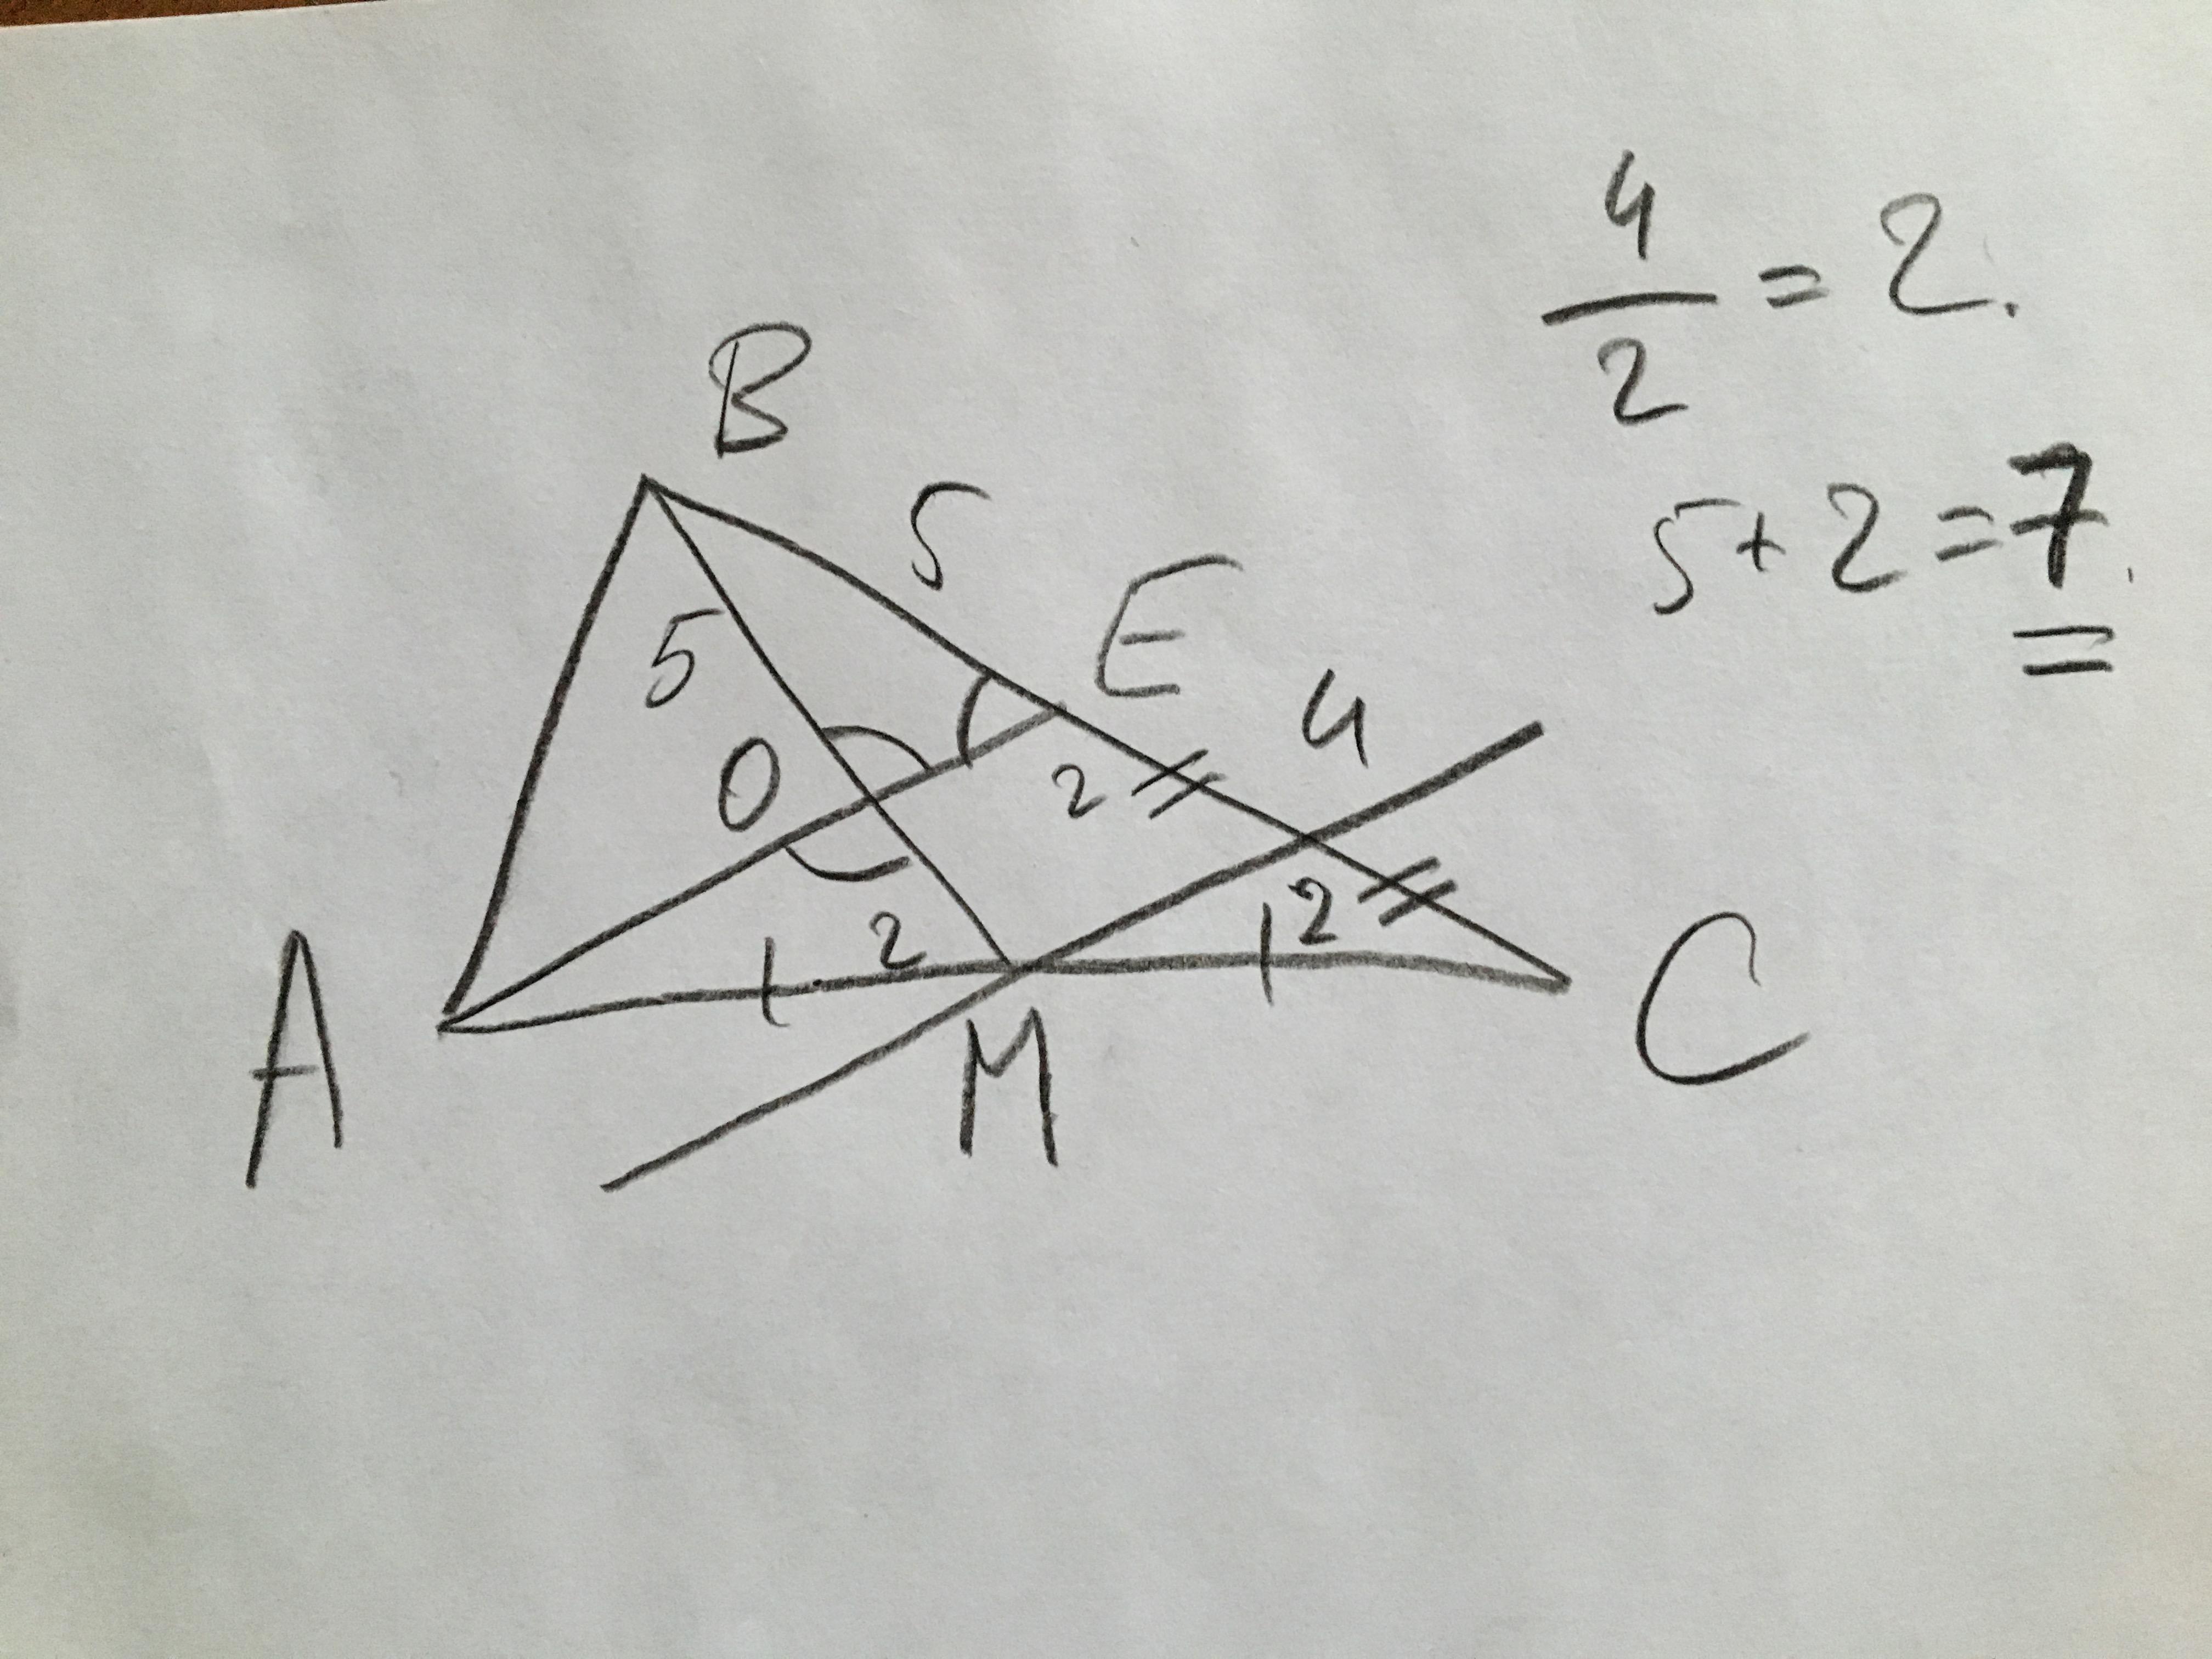 4
— = 2.
2
5 + 2 = 7.
B
5
E
5
4
O
2
2
2
A
M
C